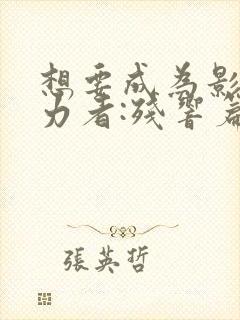 想要成為影
力者:殘響篇
張英哲